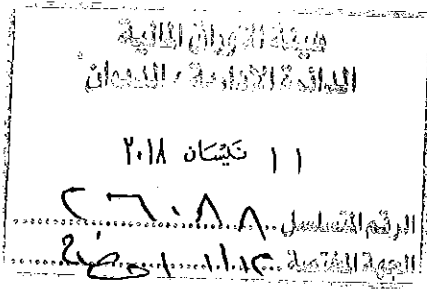 هيئة الأوراق المالية
الدائرة الإدارية / الديوان
١١ نيسان ٢٠١٨
الرقم المتسلسل ٢٦٠٨٨
الجهة المختصة